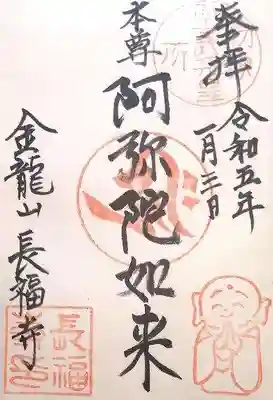 奉拝
令和五年
一月三日
本尊
阿弥陀如来
金龍山 長福寺
長福